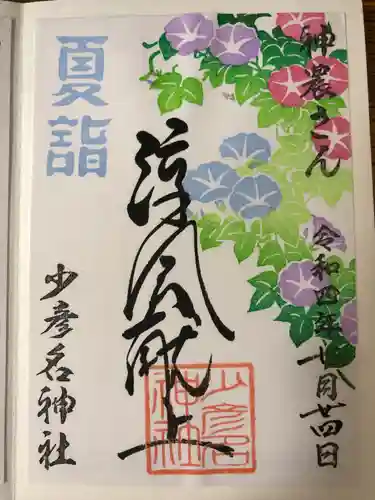 神農さん 令和四年七月廿四日
涼風献上
夏詣
少彦名神社
少彦名神社